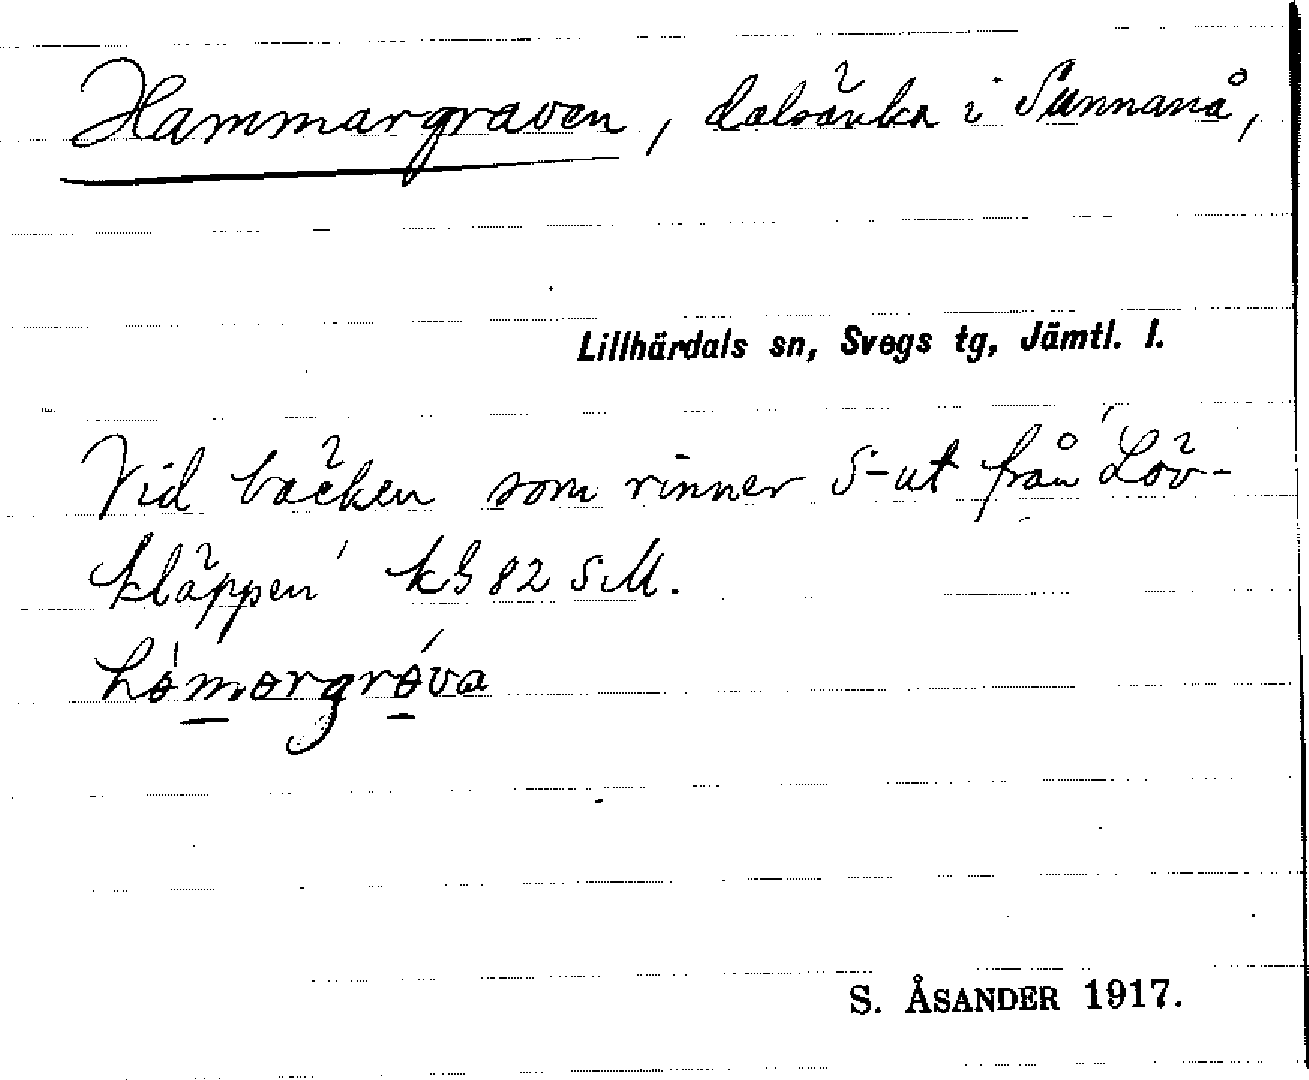 Hammargraven, dalsänka i Sunnanå,
Lillhärdals sn, Svegs tg, Jämtl. l.
Vid bäcken som rinner S-ut från 'Löv-
kläppen' kb 82 SM.
S. ÅSANDER 1917.